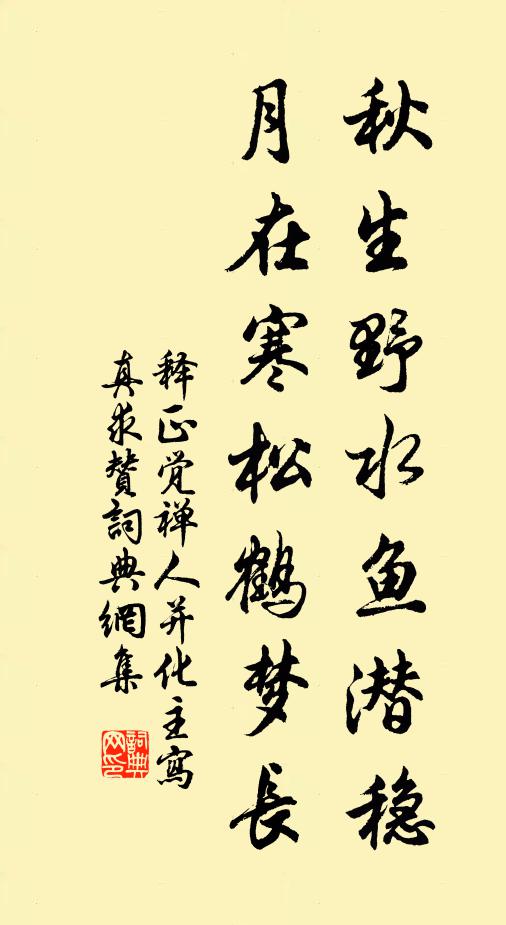 秋生野水鱼潜稳
月在寒松鹤梦长
释正觉禅人并化主寫
真求赞詞典網集
詞典网印